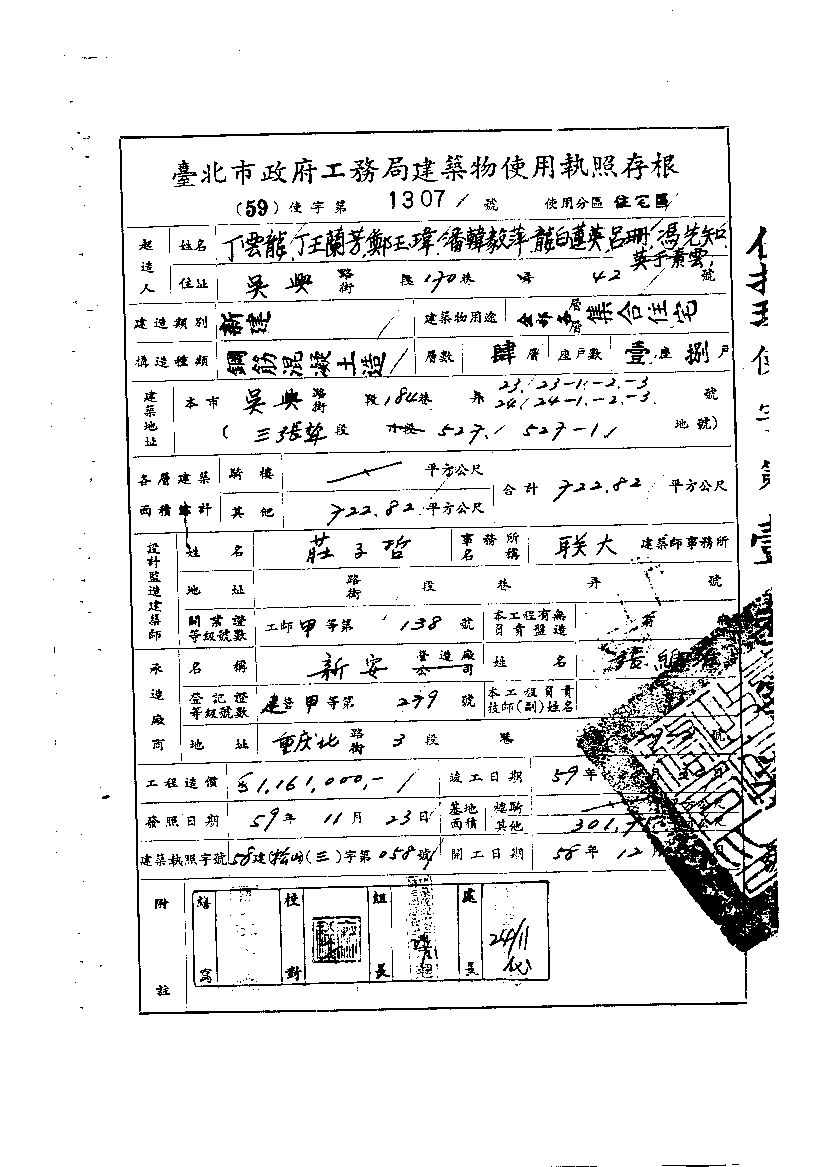 臺北市政府工務局建築物使用執照存根
(59)使字第 1307 號 使用分區 住宅區
起造人 姓名 丁雲龍、丁王蘭芳、鄭玉瑋、潘韓毅萍、龍白蓮英、呂珊、馮先知、
住址 吳興 路街 段 170巷 弄 42 號
建造類別 新建 建築物用途 全部各層 集合住宅
構造種類 鋼筋混凝土造 層數 肆層 座戶數 壹座 捌戶
建築地址 本市 吳興 路街 段 184巷 弄 23, 23-1.-2.-3 24, 24-1.-2.-3 號
(三張犁段 小段 527, 527-1 地號)
各層建築面積總計 騎樓 平方公尺 合計 722.82 平方公尺
其他 722.82 平方公尺
設計監造建築師 姓名 莊子哲 事務所名稱 联大 建築師事務所
地址 路街 段 巷 弄 號
開業證等級號數 工師甲等第 138 號 本工程有無負責監造 有
承造廠商 名稱 新安 營造廠公司 姓名
登記證等級號數 建登甲等第 239 號 本工程負責技師(副)姓名
地址 重庆北 路街 3段 巷 號
工程造價 $1,161,000,- 竣工日期 59年 月 日
發照日期 59年 11月 23日 基地面積 騎樓 平方公尺
其他 301.
建築執照字號 58建(松山)(三)字第058號 開工日期 58年 12月
附註 繕寫 校對 組長 處長
24/11